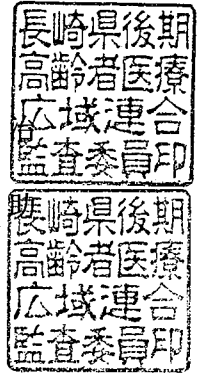 長崎県後期
高齢者医療
広域連合
監査委員印
長崎県後期
高齢者医療
広域連合
監査委員印
助